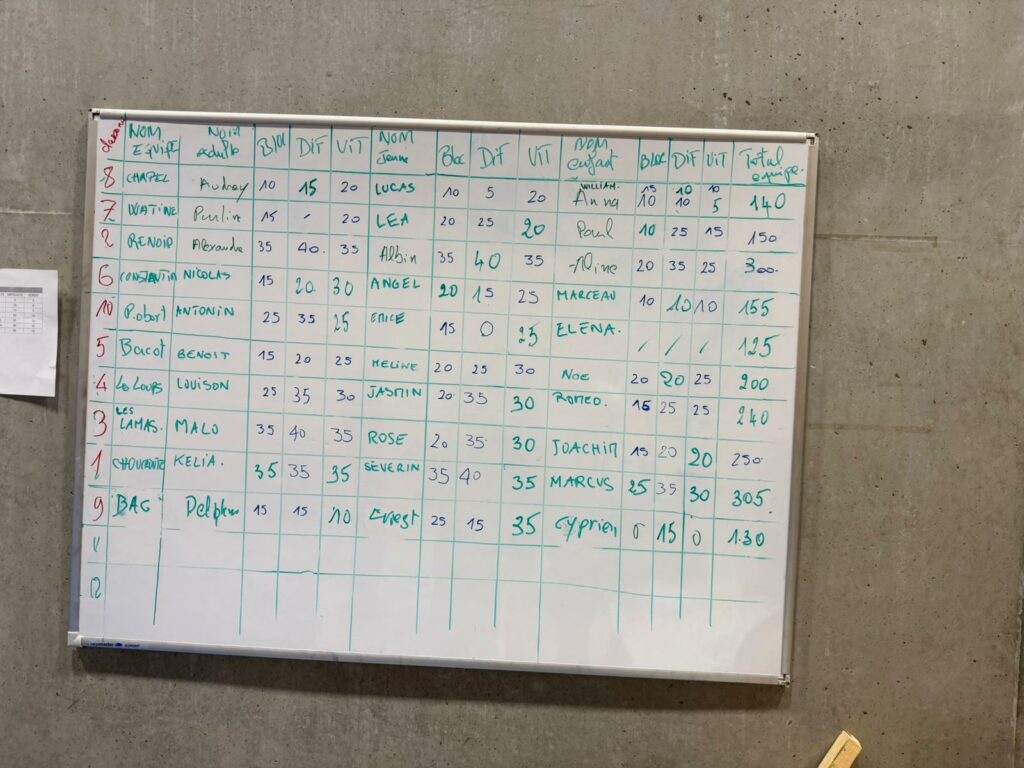 NOM EQUIPE NOM adulte BLOC DIF VIT NOM Jeune Bloc DIF VIT NOM enfant BLOC DIF VIT Total equipe.
8 CHAPEL Audrey 10 15 20 LUCAS 10 5 20 WILLIAM. 15 10 10
Anna 10 10 5 140
7 WATINE Pauline 15 / 20 LEA 20 25 20 Paul 10 25 15 150
2 RENOIR Alexandre 35 40. 35 Albin 35 40 35 Aline 20 35 25 300.
6 CONSTANTIN NICOLAS 15 20 30 ANGEL 20 15 25 MARCEAU 10 10 10 155
10 Robert ANTONIN 25 35 25 15 0 25 ELENA. / / / 125
5 Bacot BENOIT 15 20 25 MELINE 20 25 30 NOE 20 20 25 200
4 Le Loups LOUISON 25 35 30 JASMIN 20 35 30 ROMEO. 15 25 25 240
3 LES LAMAS. MALO 35 40 35 ROSE 20 35 30 JOACHIM 15 20 20 250
1 KELIA. 35 35 35 SEVERIN 35 40 35 MARCUS 25 35 30 305.
9 BAG Delphine 15 15 10 Ernest 25 15 35 Cyprien 0 15 0 130
11
12